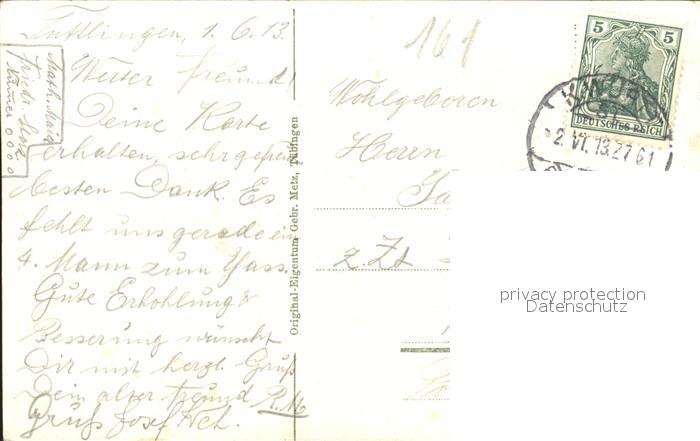 Tuttlingen, 1. 6. 13.
Werter Freund!
Deine Karte
erhalten, sehr gefreut
besten Dank. Es
fehlt uns gerade ein
4. Mann zum Gass.
Gute Erhohlung &
Besserung wünscht
Dir mit herzl. Gruß
Dein alter Freund R. M
Gruß Josef
Math.
Friedr.
0000
Original-Eigentum Gebr. Metz, Tübingen
161
Wohlgeboren
Herrn
z. Zt
5 5
DEUTSCHES REICH
2. VI. 13. 27 61
privacy protection
Datenschutz